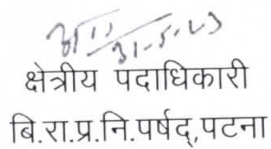 31-5-23
क्षेत्रीय पदाधिकारी
बि.रा.प्र.नि.पर्षद्,पटना